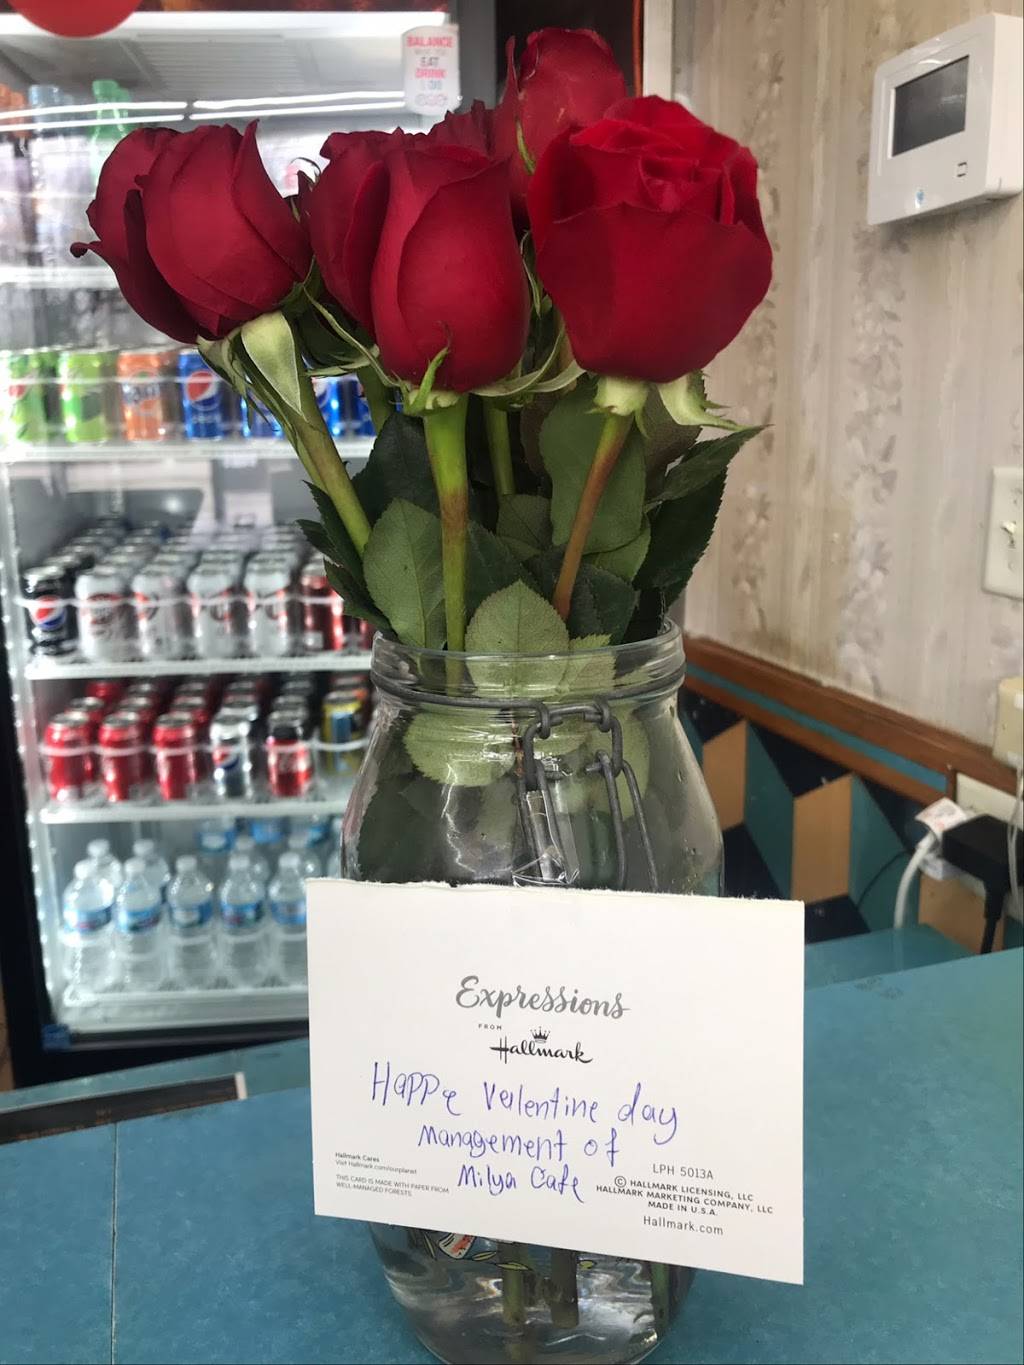 BALANCE
EAT
DRINK
Expressions
FROM
Hallmark
Happe Valentine day
Management of
Milya Cafe
Hallmark Cares
Visit Hallmark.com/ourplanet
THIS CARD IS MADE WITH PAPER FROM
WELL-MANAGED FORESTS.
LPH 5013A
© HALLMARK LICENSING, LLC
HALLMARK MARKETING COMPANY, LLC
MADE IN U.S.A.
Hallmark.com